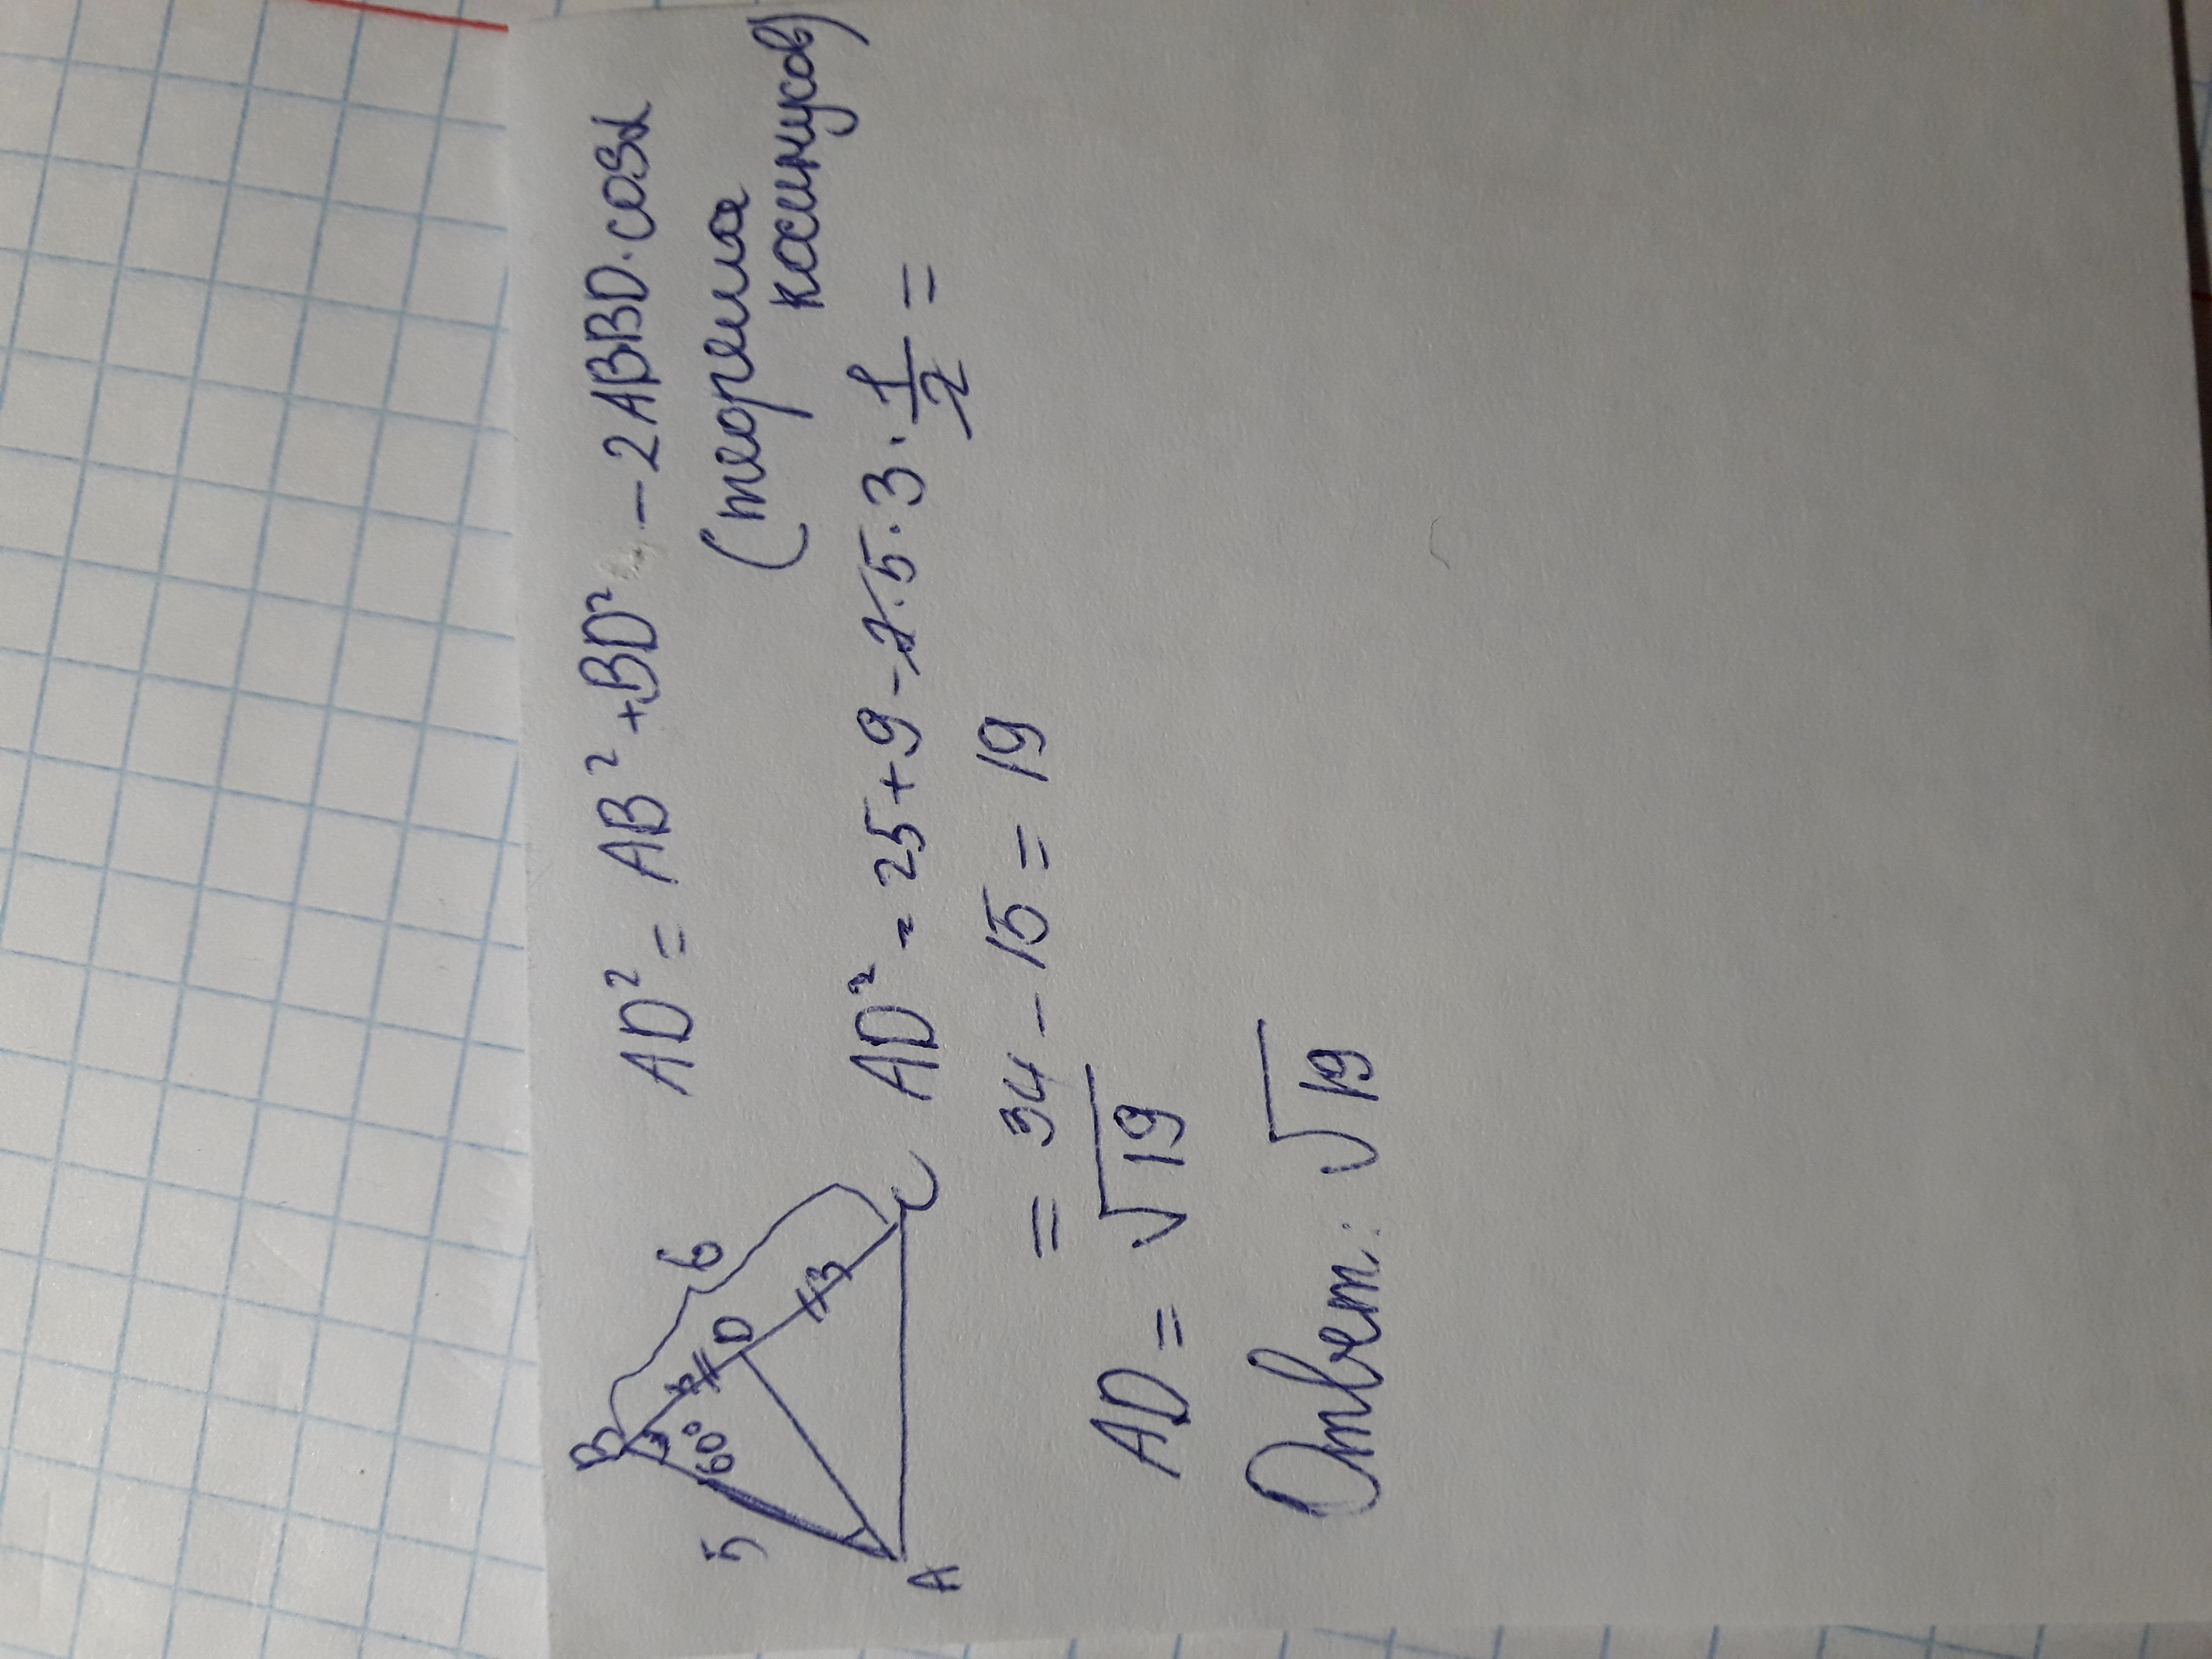 B
5
60°
3
D
6
3
A
C
AD² = AB² + BD² - 2ABBD·cosα
(теорема
косинусов)
AD² = 25+9-2·5·3·1/2=
= 34 - 15 = 19
AD = √19
Ответ: √19